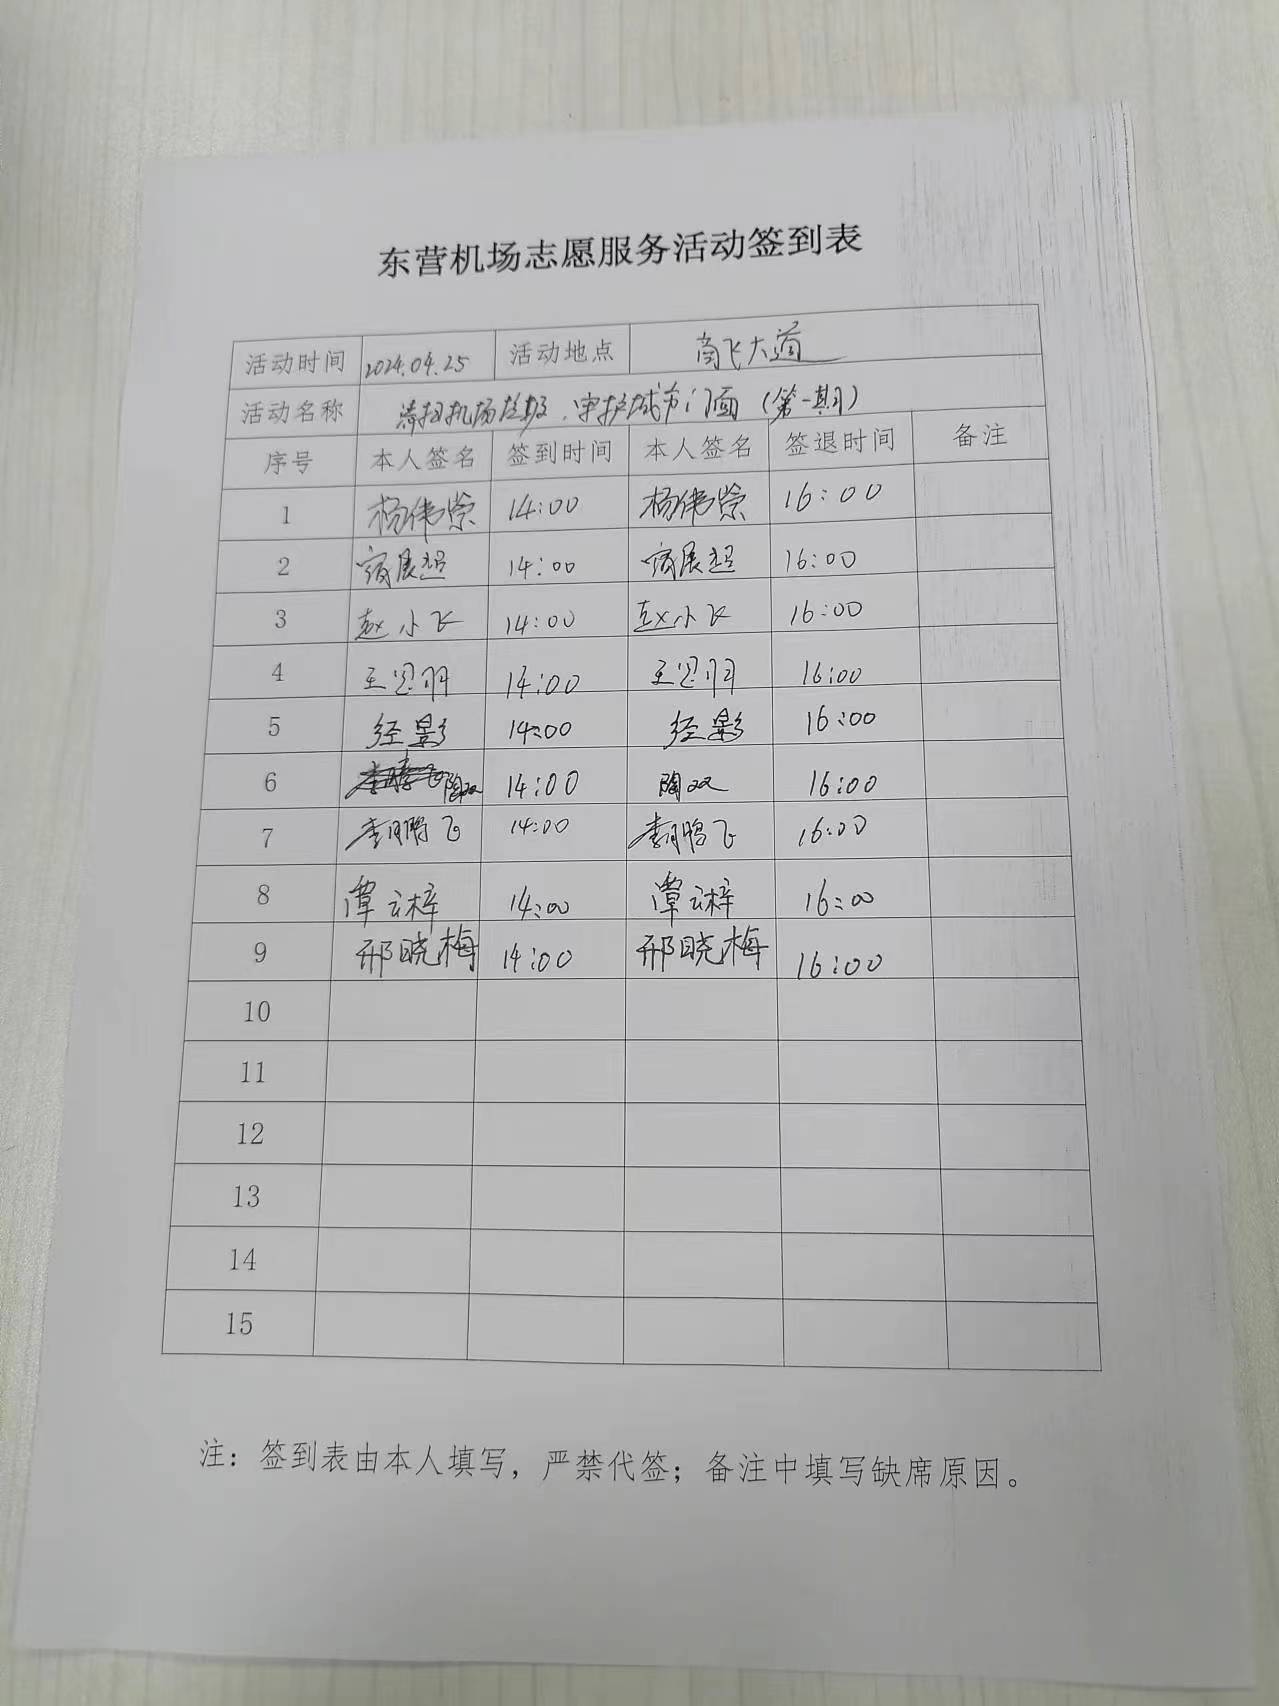 东营机场志愿服务活动签到表
活动时间 2024.04.25 活动地点 商飞大道
活动名称 清扫机场垃圾、守护城市门面（第一期）
序号 本人签名 签到时间 本人签名 签退时间 备注
1 杨伟荣 14:00 杨伟荣 16:00
2 展超 14:00 展超 16:00
3 赵小飞 14:00 赵小飞 16:00
4 王思羽 14:00 王思羽 16:00
5 经影 14:00 经影 16:00
6 陶双 14:00 陶双 16:00
7 李鹏飞 14:00 李鹏飞 16:00
8 覃云梓 14:00 覃云梓 16:00
9 邢晓梅 14:00 邢晓梅 16:00
10
11
12
13
14
15
注：签到表由本人填写，严禁代签；备注中填写缺席原因。